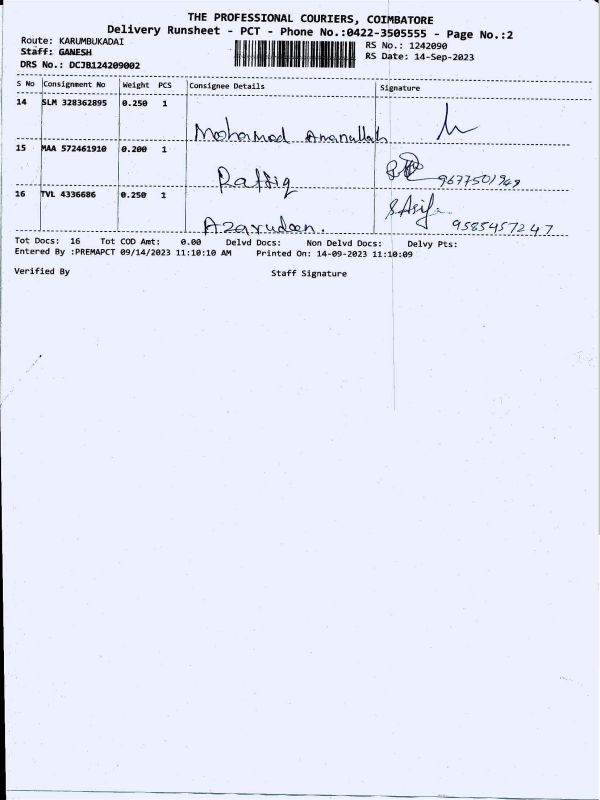 THE PROFESSIONAL COURIERS, COIMBATORE
Delivery Runsheet - PCT - Phone No.:0422-3505555 - Page No.:2
Route: KARUMBUKADAI RS No.: 1242090
Staff: GANESH RS Date: 14-Sep-2023
DRS No.: DCJB124209002
S No Consignment No Weight PCS Consignee Details Signature
14 SLM 328362895 0.250 1
Mohamod Amanullah
15 MAA 572461910 0.200 1
Raffiq
16 TVL 4336686 0.250 1 S.Asifa
Azarudeen. 9585457247
Tot Docs: 16 Tot COD Amt: 0.00 Delvd Docs: Non Delvd Docs: Delvy Pts:
Entered By :PREMAPCT 09/14/2023 11:10:10 AM Printed On: 14-09-2023 11:10:09
Verified By Staff Signature